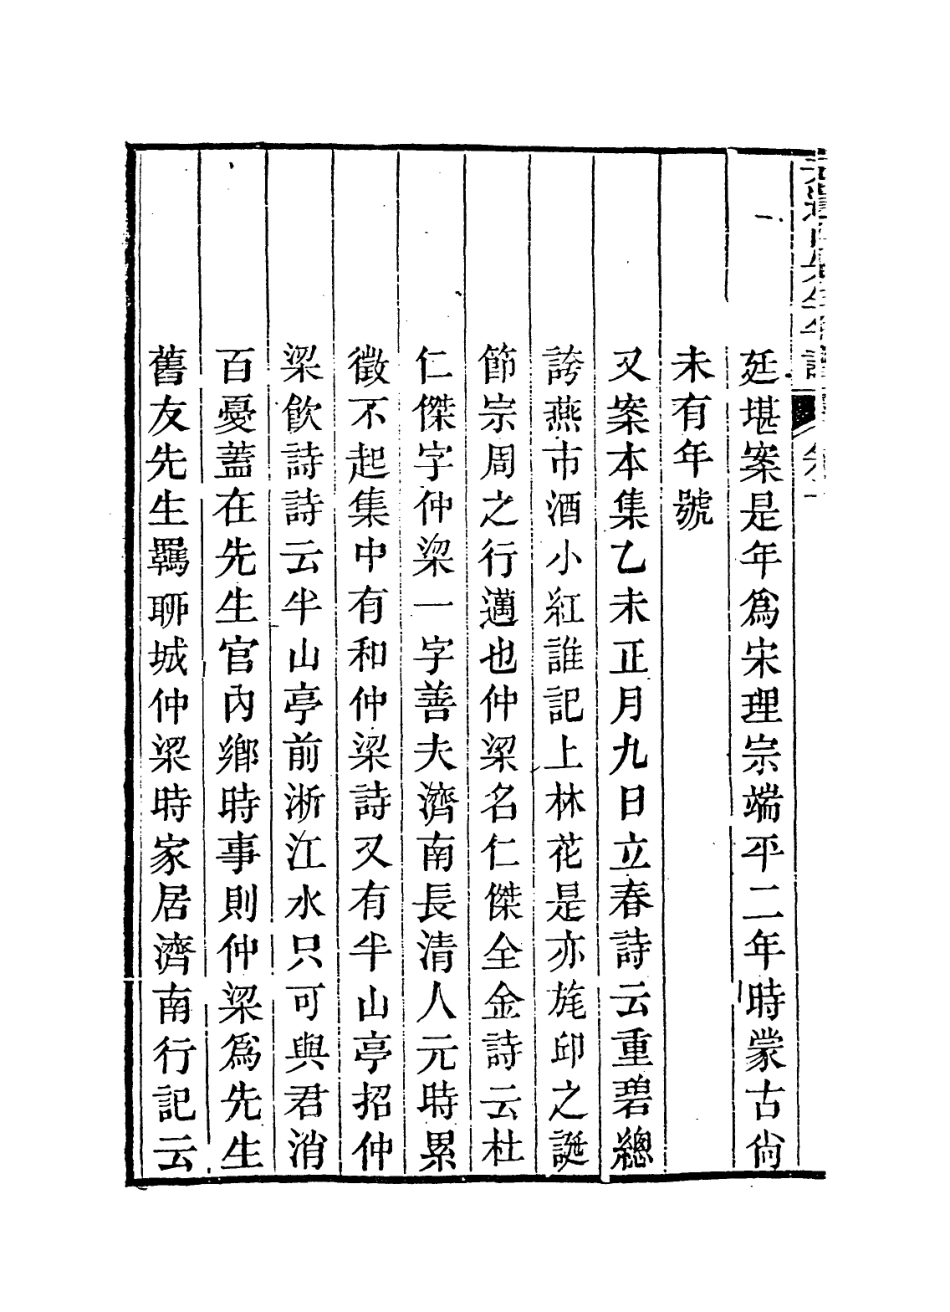 廷堪案是年爲宋理宗端平二年時蒙古尙
未有年號
又案本集乙未正月九日立春詩云重碧總
誇燕市酒小紅誰記上林花是亦旄邱之誕
節宗周之行邁也仲梁名仁傑全金詩云杜
仁傑字仲梁一字善夫濟南長清人元時累
徵不起集中有和仲梁詩又有半山亭招仲
梁飮詩詩云半山亭前淅江水只可與君消
百憂蓋在先生官內鄉時事則仲梁爲先生
舊友先生羈聊城仲梁時家居濟南行記云